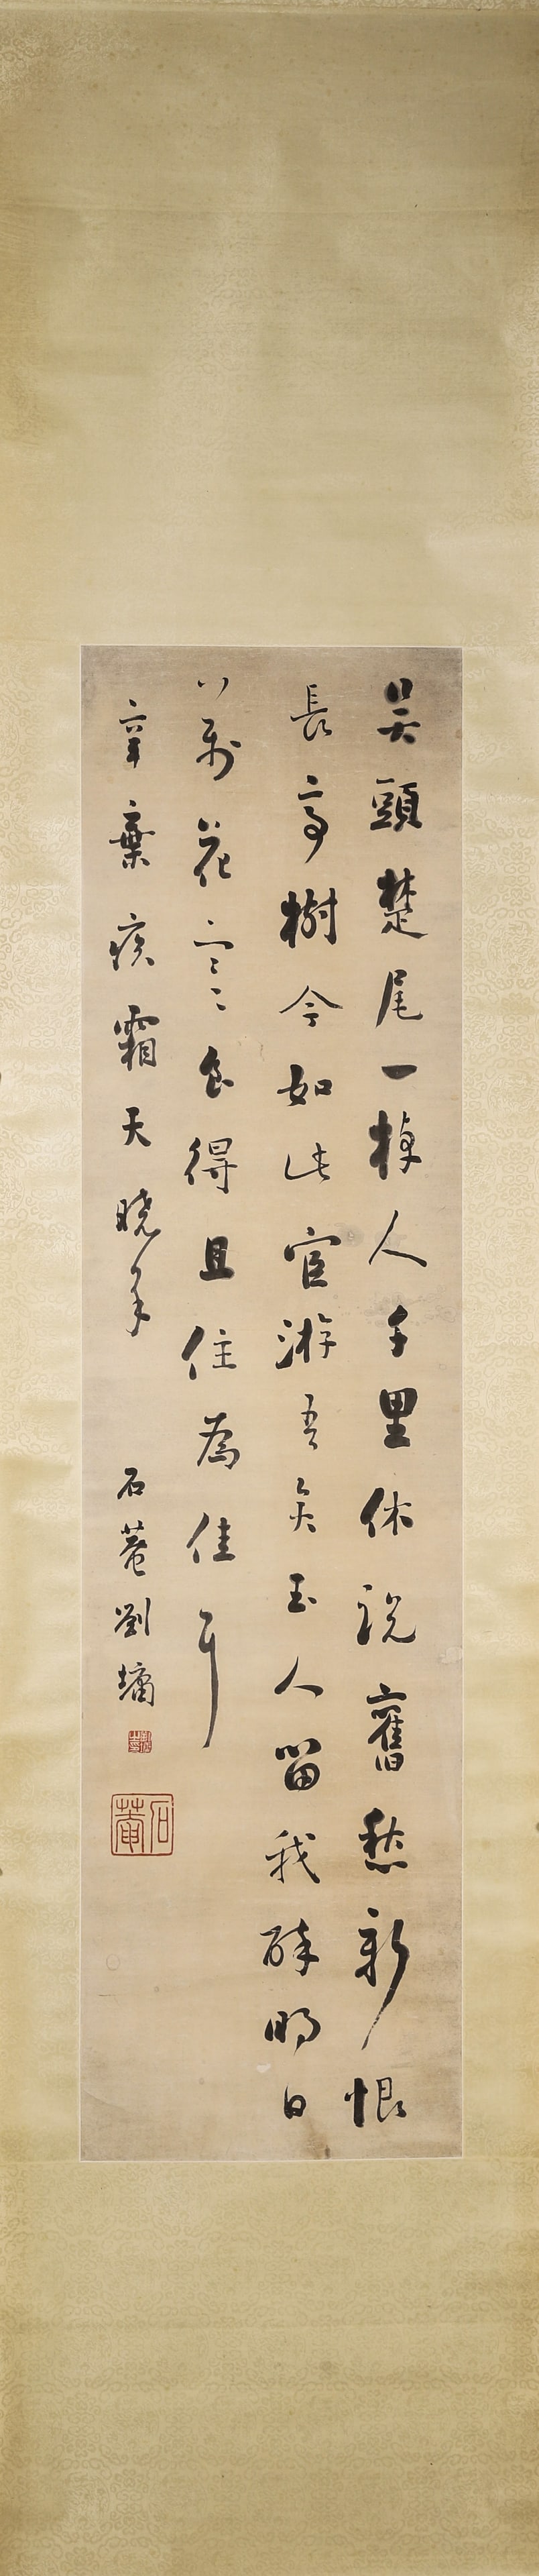 吳頭楚尾一棹人千里休說舊愁新恨
長亭樹今如此宦游吾矣玉人留我醉明日
萬花寒食得且住為佳耳
辛棄疾霜天曉角
石菴劉墉
石菴